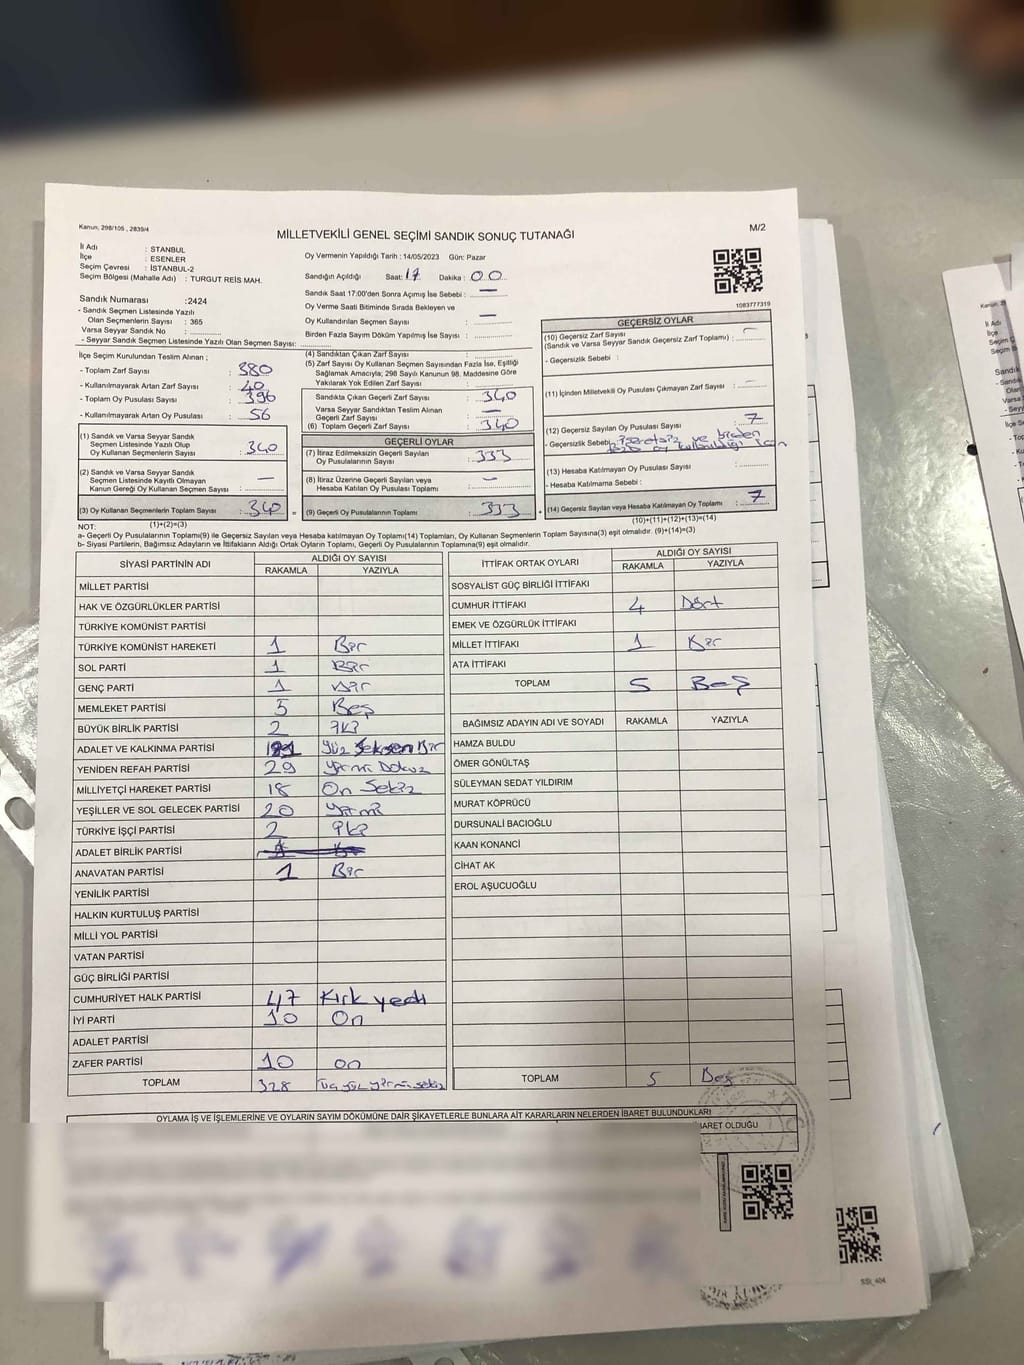 Kanun: 298/105 , 2839/4
M/2
MİLLETVEKİLİ GENEL SEÇİMİ SANDIK SONUÇ TUTANAĞI
İl Adı : STANBUL
İlçe : ESENLER
Seçim Çevresi : İSTANBUL-2
Seçim Bölgesi (Mahalle Adı) : TURGUT REİS MAH.
Oy Vermenin Yapıldığı Tarih : 14/05/2023 Gün: Pazar
Sandığın Açıldığı Saat: 17 Dakika : 00
Sandık Saat 17:00'den Sonra Açımış İse Sebebi : —
Oy Verme Saati Bitiminde Sırada Bekleyen ve
Oy Kullandırılan Seçmen Sayısı : —
Birden Fazla Sayım Döküm Yapılmış İse Sayısı :
1083777319
Sandık Numarası :2424
- Sandık Seçmen Listesinde Yazılı
Olan Seçmenlerin Sayısı : 365
Varsa Seyyar Sandık No :
- Seyyar Sandık Seçmen Listesinde Yazılı Olan Seçmen Sayısı:
İlçe Seçim Kurulundan Teslim Alınan ;
- Toplam Zarf Sayısı : 380
- Kullanılmayarak Artan Zarf Sayısı : 40
- Toplam Oy Pusulası Sayısı : 396
- Kullanılmayarak Artan Oy Pusulası : 56
(1) Sandık ve Varsa Seyyar Sandık
Seçmen Listesinde Yazılı Olup
Oy Kullanan Seçmenlerin Sayısı : 340
(2) Sandık ve Varsa Seyyar Sandık
Seçmen Listesinde Kayıtlı Olmayan
Kanun Gereği Oy Kullanan Seçmen Sayısı : —
(3) Oy Kullanan Seçmenlerin Toplam Sayısı : 340
(1)+(2)=(3)
(4) Sandıktan Çıkan Zarf Sayısı :
(5) Zarf Sayısı Oy Kullanan Seçmen Sayısından Fazla İse, Eşitliği
Sağlamak Amacıyla; 298 Sayılı Kanunun 98. Maddesine Göre
Yakılarak Yok Edilen Zarf Sayısı :
Sandıkta Çıkan Geçerli Zarf Sayısı : 340
Varsa Seyyar Sandıktan Teslim Alınan
Geçerli Zarf Sayısı : —
(6) Toplam Geçerli Zarf Sayısı : 340
GEÇERLİ OYLAR
(7) İtiraz Edilmeksizin Geçerli Sayılan
Oy Pusulalarının Sayısı : 333
(8) İtiraz Üzerine Geçerli Sayılan veya
Hesaba Katılan Oy Pusulası Toplamı : —
= (9) Geçerli Oy Pusulalarının Toplamı : 333
GEÇERSİZ OYLAR
(10) Geçersiz Zarf Sayısı
(Sandık ve Varsa Seyyar Sandık Geçersiz Zarf Toplamı) : —
- Geçersizlik Sebebi :
(11) İçinden Milletvekili Oy Pusulası Çıkmayan Zarf Sayısı : —
(12) Geçersiz Sayılan Oy Pusulası Sayısı : 7
- Geçersizlik Sebebi : işaretsiz ve birden
fazla oy kullanıldığı için
(13) Hesaba Katılmayan Oy Pusulası Sayısı :
- Hesaba Katılmama Sebebi :
+ (14) Geçersiz Sayılan veya Hesaba Katılmayan Oy Toplamı : 7
(10)+(11)+(12)+(13)=(14)
NOT:
a- Geçerli Oy Pusulalarının Toplamı(9) ile Geçersiz Sayılan veya Hesaba katılmayan Oy Toplamı(14) Toplamları, Oy Kullanan Seçmenlerin Toplam Sayısına(3) eşit olmalıdır. (9)+(14)=(3)
b- Siyasi Partilerin, Bağımsız Adayların ve İttifakların Aldığı Ortak Oyların Toplamı, Geçerli Oy Pusulalarının Toplamına(9) eşit olmalıdır.
SİYASİ PARTİNİN ADI ALDIĞI OY SAYISI
RAKAMLA YAZIYLA
MİLLET PARTİSİ
HAK VE ÖZGÜRLÜKLER PARTİSİ
TÜRKİYE KOMÜNİST PARTİSİ
TÜRKİYE KOMÜNİST HAREKETİ 1 Bir
SOL PARTİ 1 Bir
GENÇ PARTİ 1 Bir
MEMLEKET PARTİSİ 5 Beş
BÜYÜK BİRLİK PARTİSİ 2 İki
ADALET VE KALKINMA PARTİSİ 181 Yüz Seksen Bir
YENİDEN REFAH PARTİSİ 29 Yirmi Dokuz
MİLLİYETÇİ HAREKET PARTİSİ 18 On Sekiz
YEŞİLLER VE SOL GELECEK PARTİSİ 20 Yirmi
TÜRKİYE İŞÇİ PARTİSİ 2 İki
ADALET BİRLİK PARTİSİ
ANAVATAN PARTİSİ 1 Bir
YENİLİK PARTİSİ
HALKIN KURTULUŞ PARTİSİ
MİLLİ YOL PARTİSİ
VATAN PARTİSİ
GÜÇ BİRLİĞİ PARTİSİ
CUMHURİYET HALK PARTİSİ 47 Kırk yedi
İYİ PARTİ 10 On
ADALET PARTİSİ
ZAFER PARTİSİ 10 on
TOPLAM 328 üç yüz yirmi sekiz
İTTİFAK ORTAK OYLARI ALDIĞI OY SAYISI
RAKAMLA YAZIYLA
SOSYALİST GÜÇ BİRLİĞİ İTTİFAKI
CUMHUR İTTİFAKI 4 Dört
EMEK VE ÖZGÜRLÜK İTTİFAKI
MİLLET İTTİFAKI 1 Bir
ATA İTTİFAKI
TOPLAM 5 Beş
BAĞIMSIZ ADAYIN ADI VE SOYADI RAKAMLA YAZIYLA
HAMZA BULDU
ÖMER GÖNÜLTAŞ
SÜLEYMAN SEDAT YILDIRIM
MURAT KÖPRÜCÜ
DURSUNALİ BACIOĞLU
KAAN KONANCİ
CİHAT AK
EROL AŞUCUOĞLU
TOPLAM 5 Beş
OYLAMA İŞ VE İŞLEMLERİNE VE OYLARIN SAYIM DÖKÜMÜNE DAİR ŞİKAYETLERLE BUNLARA AİT KARARLARIN NELERDEN İBARET BULUNDUKLARI
İBARET OLDUĞU
SSI_404